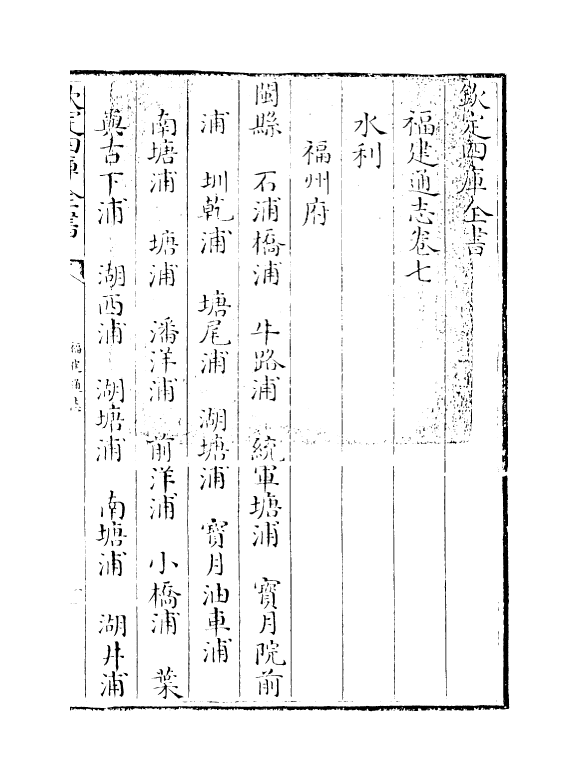 欽定四庫全書
福建通志卷七
水利
福州府
閩縣　石浦橋浦　牛路浦　統軍塘浦　寳月院前
浦　圳乾浦　塘尾浦　湖塘浦　寳月油車浦
南塘浦　塘浦　潘洋浦　前洋浦　小橋浦　葉
與古下浦　湖西浦　湖塘浦　南塘浦　湖井浦
欽定四庫全書
福建通志